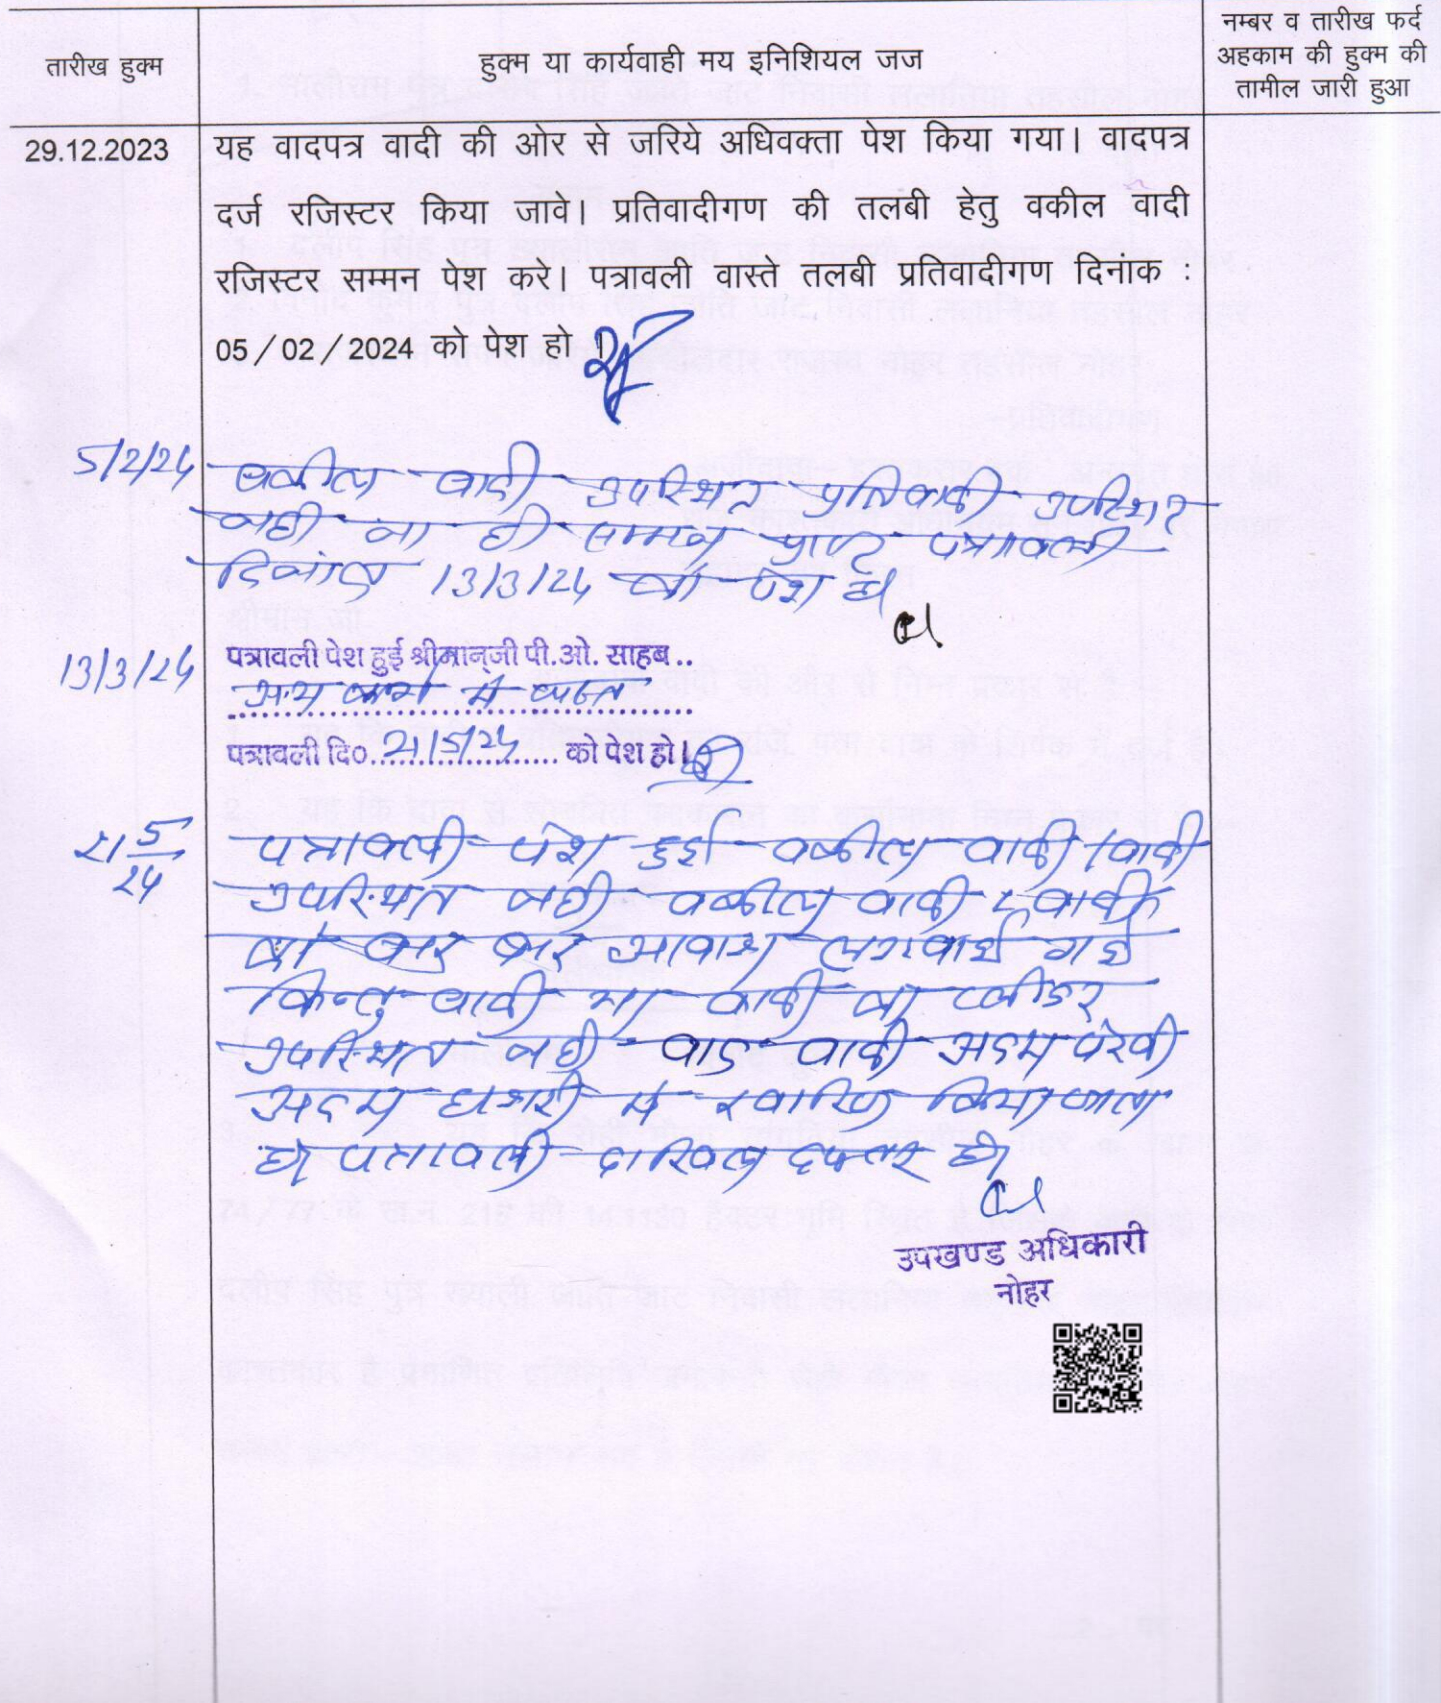 तारीख हुक्म
हुक्म या कार्यवाही मय इनिशियल जज
नम्बर व तारीख फर्द
अहकाम की हुक्म की
तामील जारी हुआ
29.12.2023
यह वादपत्र वादी की ओर से जरिये अधिवक्ता पेश किया गया। वादपत्र
दर्ज रजिस्टर किया जावे। प्रतिवादीगण की तलबी हेतु वकील वादी
रजिस्टर सम्मन पेश करे। पत्रावली वास्ते तलबी प्रतिवादीगण दिनांक :
05/02/2024 को पेश हो ।
5/2/24
वकील वादी उपस्थित प्रतिवादी उपस्थित
नही ना ही सम्मन प्राप्त पत्रावली
दिनांक 13/3/24 को पेश हो
13/3/24
पत्रावली पेश हुई श्रीमान्‌जी पी.ओ. साहब..
अन्य कार्य मे व्यस्त
पत्रावली दि०. 21/5/24 को पेश हो।
21 5/24
पत्रावली पेश हुई वकील वादी/वादी
उपस्थित नही वकील वादी व वादी
को बार बार आवाज लगवाई गई
किन्तु वादी या वादी का प्लीडर
उपस्थित नही वाद वादी अदम पेरवी
अदम हाजरी मे खारिज किया जाता
है पत्रावली दाखिल दफ्तर हो
उपखण्ड अधिकारी
नोहर